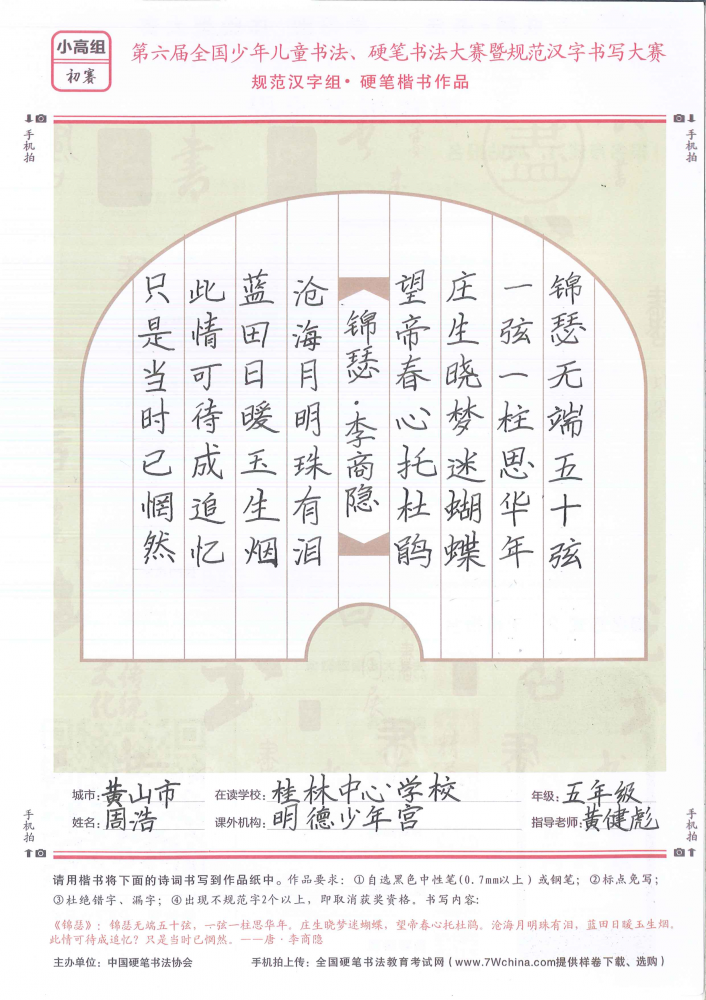 小高组
初赛
第六届全国少年儿童书法、硬笔书法大赛暨规范汉字书写大赛
规范汉字组·硬笔楷书作品
手机拍
手机拍
锦瑟无端五十弦
一弦一柱思华年
庄生晓梦迷蝴蝶
望帝春心托杜鹃
锦瑟·李商隐
沧海月明珠有泪
蓝田日暖玉生烟
此情可待成追忆
只是当时已惘然
城市：黄山市 在读学校：桂林中心学校 年级：五年级
姓名：周浩 课外机构：明德少年宫 指导老师：黄健彪
手机拍
手机拍
请用楷书将下面的诗词书写到作品纸中。作品要求：①自选黑色中性笔(0.7mm以上）或钢笔；②标点免写；
③杜绝错字、漏字；④出现不规范字2个以上，即取消获奖资格。书写内容：
《锦瑟》：锦瑟无端五十弦，一弦一柱思华年。庄生晓梦迷蝴蝶，望帝春心托杜鹃。沧海月明珠有泪，蓝田日暖玉生烟。
此情可待成追忆？只是当时已惘然。——唐·李商隐
主办单位：中国硬笔书法协会 手机拍上传：全国硬笔书法教育考试网（www.7Wchina.com提供样卷下载、选购）